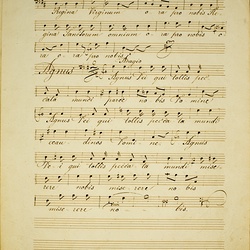 Regina Virginum ora pro nobis Re
gina Sanctorum omnium ora pro nobis o
ra ora pro nobis
Adagio
Agnus Agnus Dei qui tollis pec
cata mundi parce nobis Domine
Agnus Dei qui tollis peccata mundi
exaudi nos Domine Agnus
Dei qui tollis peccata mundi mise
rere nobis miserere nobis
miserere nobis.